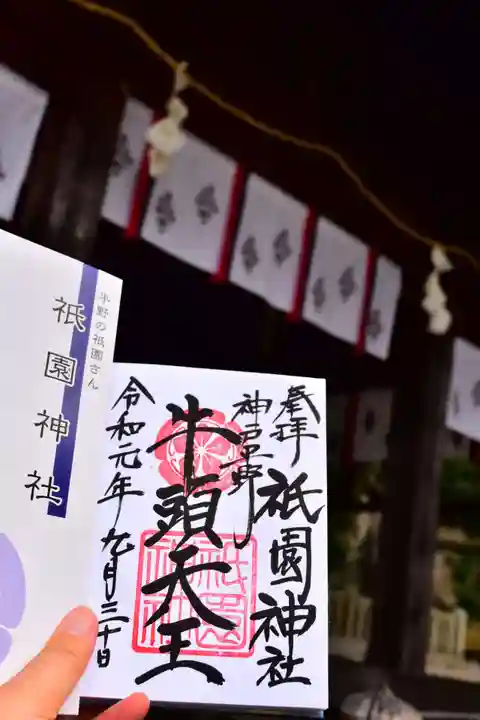 平野の祇園さん
祇園神社
奉拝
神戸平野
祇園神社
牛頭天王
祇園神社
令和元年九月三十日